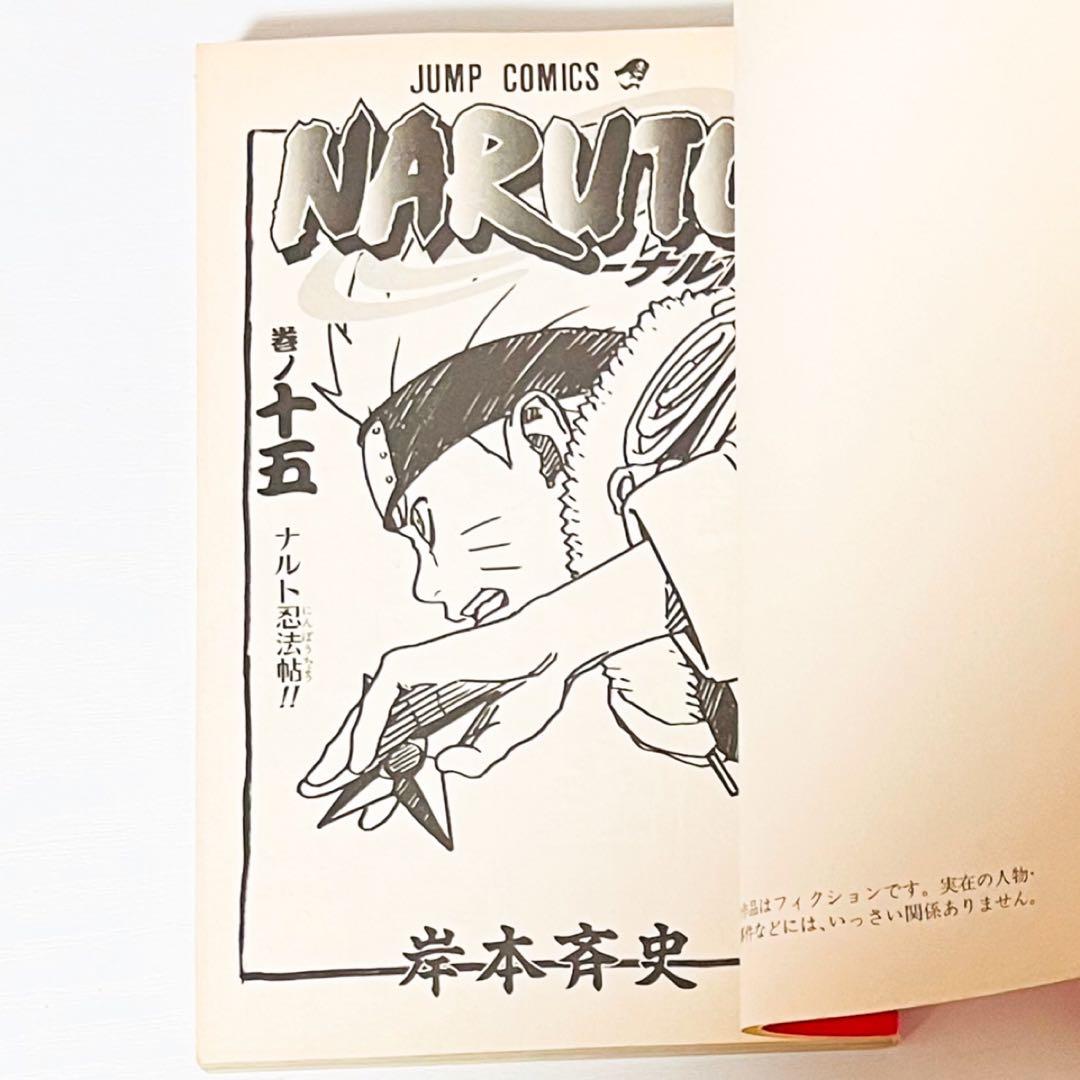 JUMP COMICS
NARUTO
ーナル
巻ノ十五
ナルト忍法帖!!
にんぽうちょう
岸本斉史
作品はフィクションです。実在の人物・
事件などには、いっさい関係ありません。